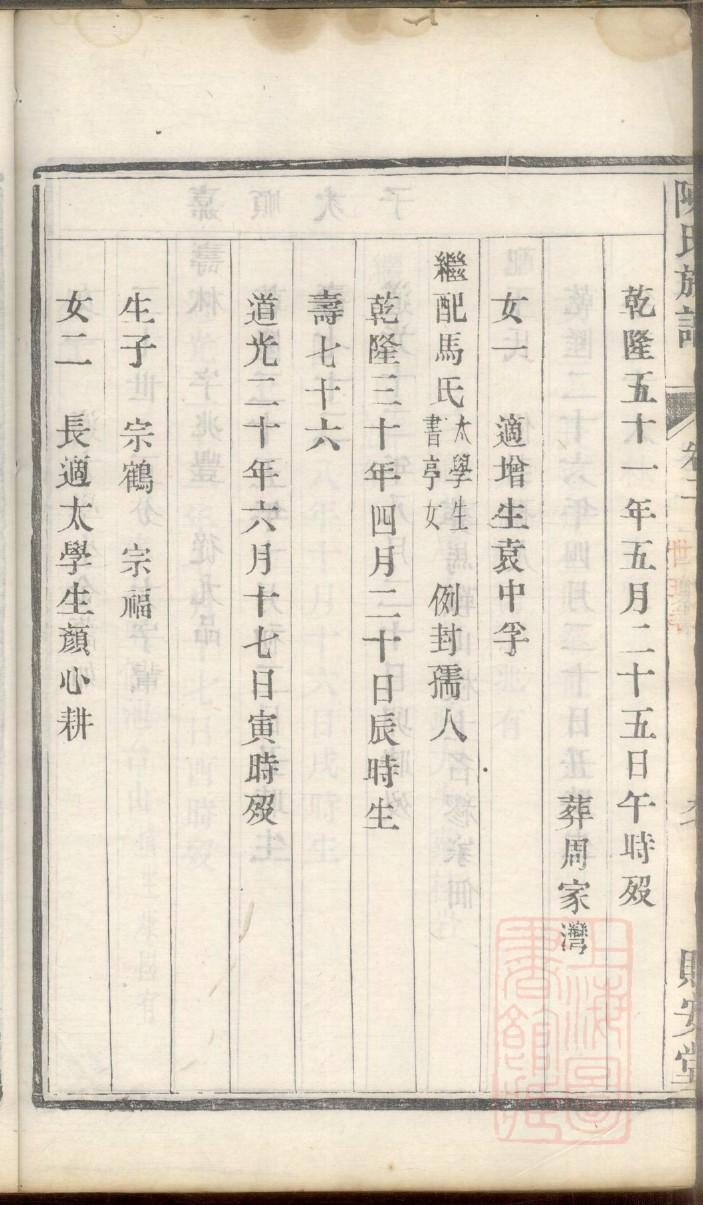 陳氏族譜
卷二
則安堂
乾隆五十一年五月二十五日午時歿
葬周家灣
女一　適增生袁中孚
繼配馬氏太學生書亭女　例封孺人
乾隆三十年四月二十日辰時生
壽七十六
道光二十年六月十七日寅時歿
生子　宗鶴　宗福
女二　長適太學生顏心耕
上海圖書館藏